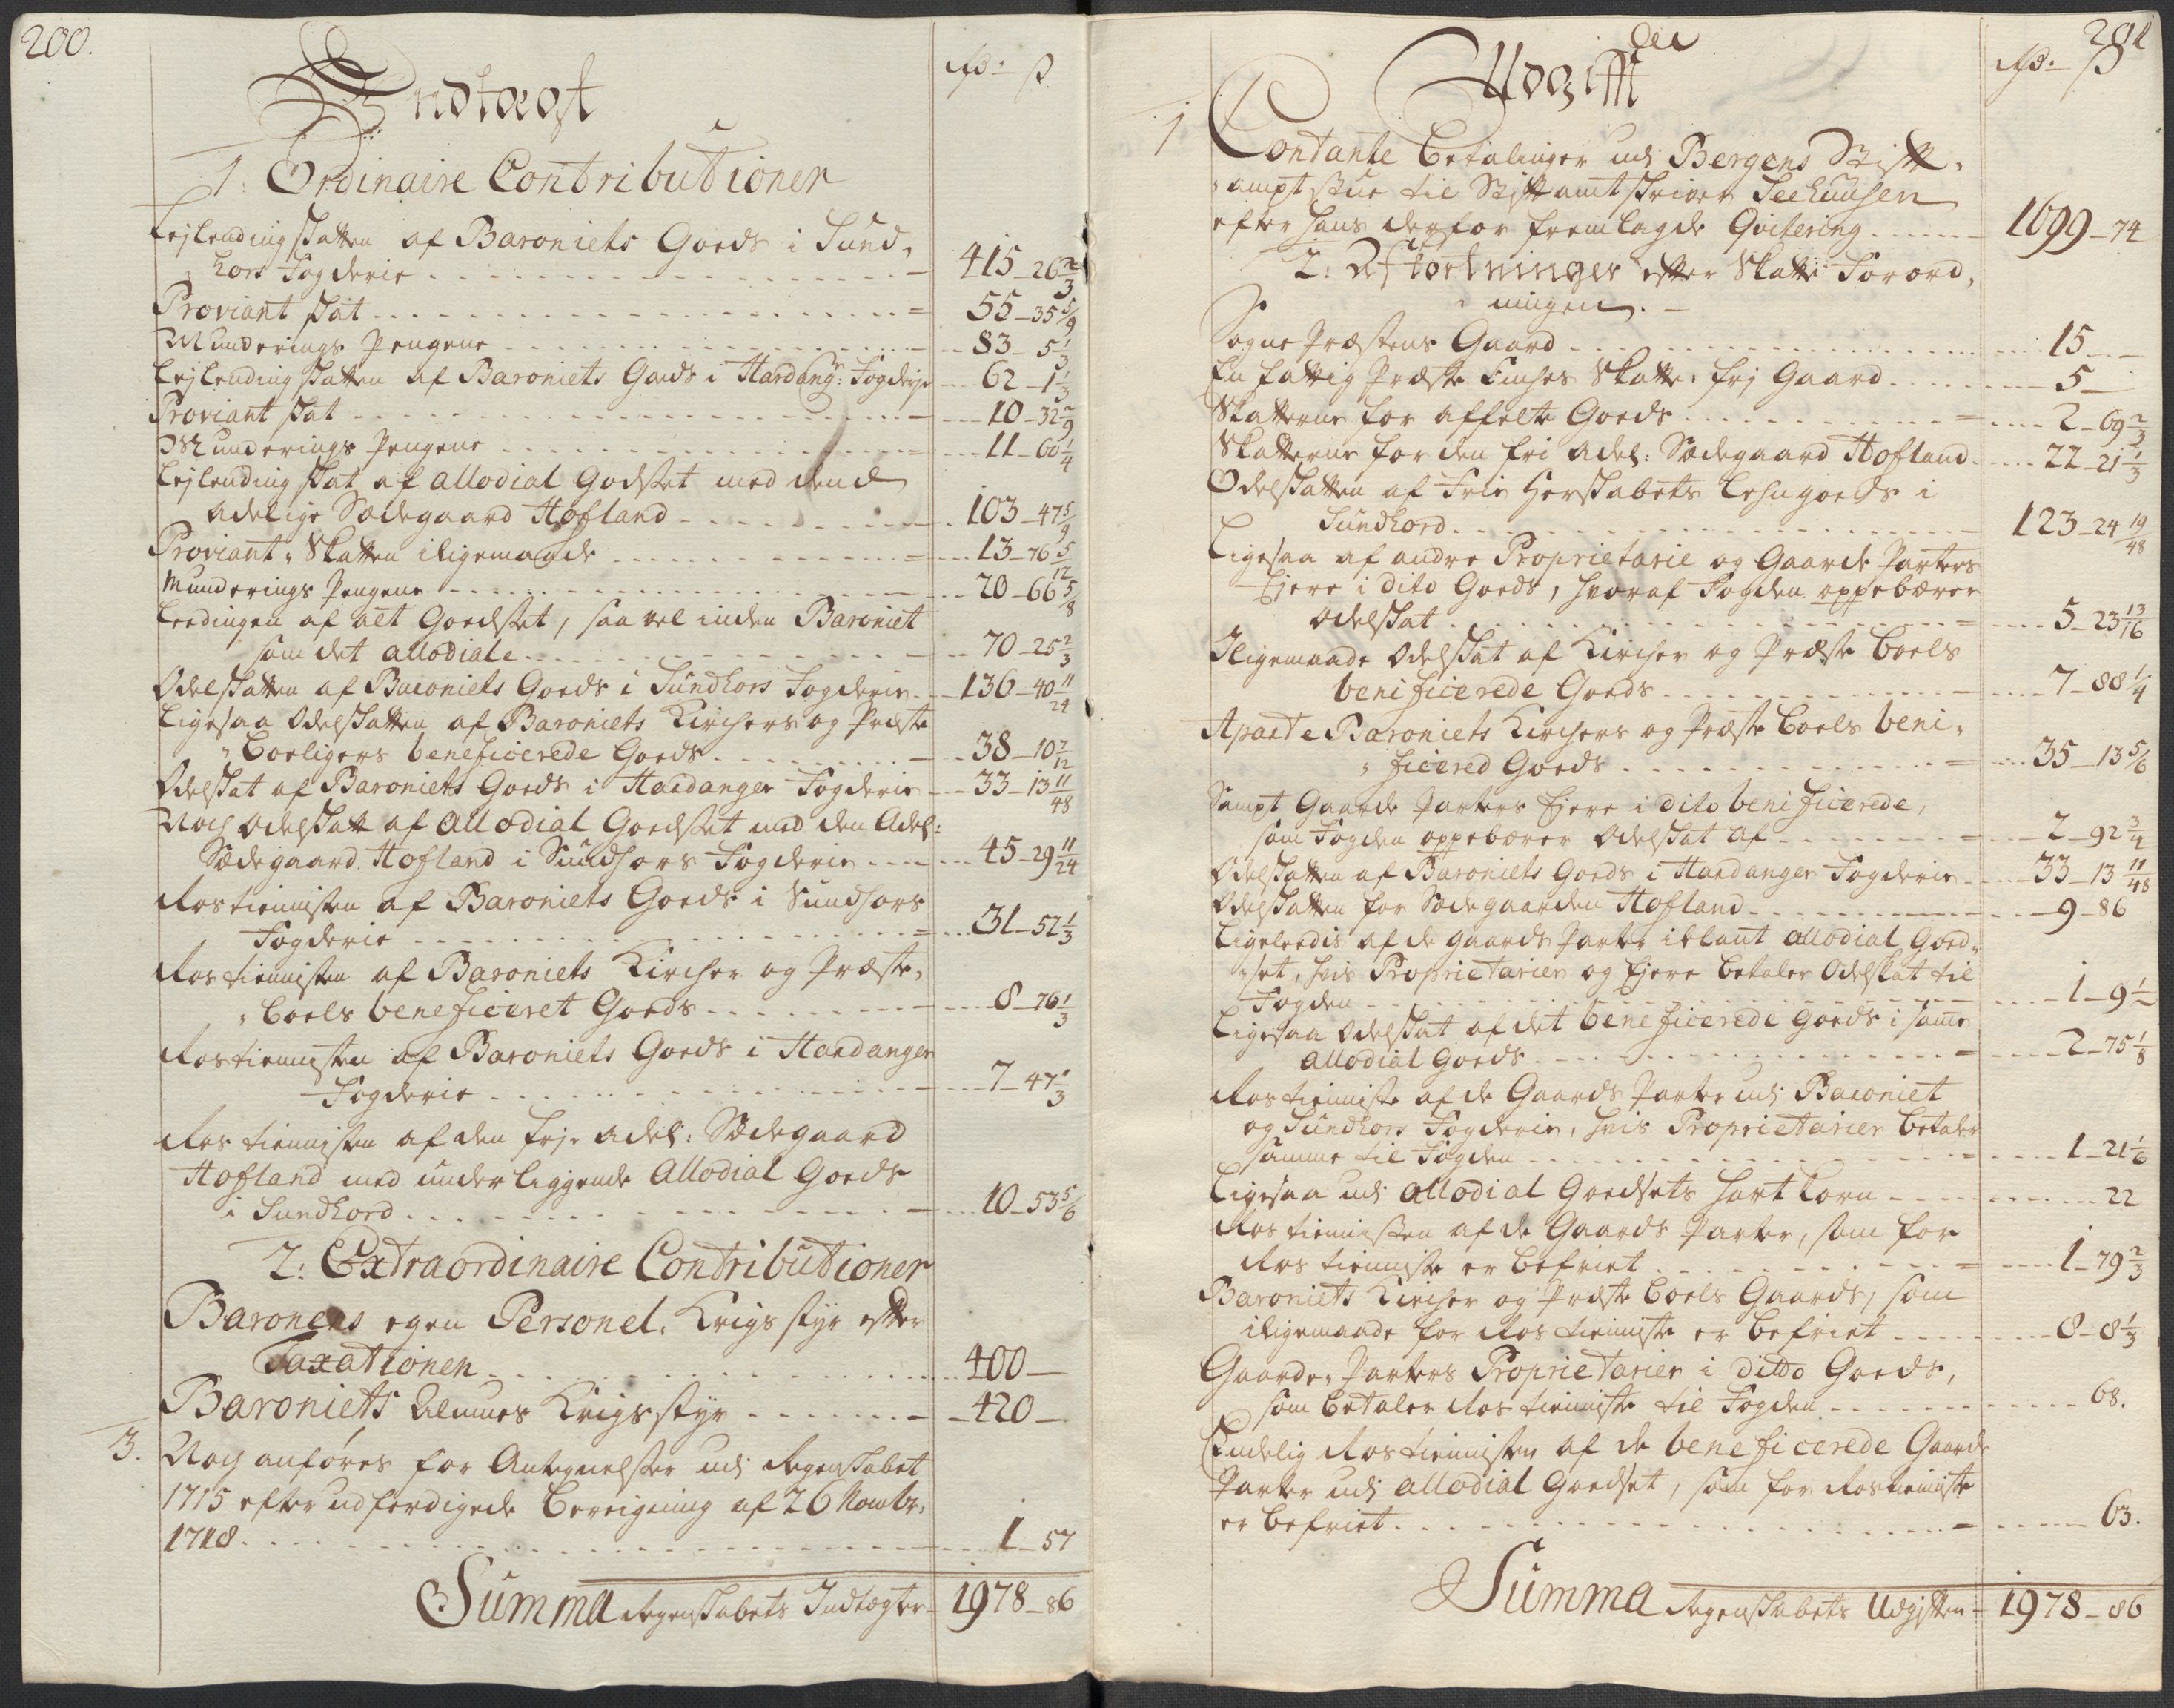 200.
Indtægt
Rd: ß.
1: Ordinaire Contributioner
Lejlendingskatten af Baroniets Goeds i Sund,
hors Fogderie 415-26 2/3
Proviant skat 55-35 5/9
Munderings Pengene 83-5 1/3
Lejlendingskatten af Baroniets Goeds i Hardangr: Fogderje 62-1 1/3
Proviant skat 10-32 2/9
Munderings Pengene 11-60 1/4
Lejlendingskat af allodial Godset med dend
Adelige Sædegaard Hofland 103-47 5/9
Proviant, Skatten iligemaade 13-76 5/12
Munderings Pengene 20-66 5/8
Leedingen af alt Goedset, saa vel inden Baroniet
som det allodiale 70-25 2/3
Odelskatten af Baroniets Goeds i Sundhors Fogderie 136-40 11/24
Ligesaa Odelskatten af Baroniets Kirchers og Præste
Boeligers beneficerede Goeds 38-10 7/12
Odelskat af Baroniets Goeds i Hardanger Fogderie 33-13 11/48
Noch Odelskatt af Allodial Goedset med den Adel:
Sædegaard Hofland i Sundhors Fogderie 45-29 11/24
Rostienisten af Baroniets Goeds i Sundhors
Fogderie 31-52 1/3
Rostienisten af Baroniets Kircher og Præste,
Boels beneficeret Goeds 8-76 1/3
Rostienisten af Baroniets Goeds i Hardanger
Fogderie 7-47 1/3
Ros tienisten af den frj. adel: Sædegaard
Hofland med underliggende Allodial Goeds
i Sundhord 10-53 5/6
2: Extraordinaire Contributioner
Baronens egen Personel. Krigs styr efter
Taxationen 400-
Baroniets Almues Krigsstyr 420-
3. Noch anføres for Antegnelser udj Regenskabet
1715 efter udferdigede Bereigning af 26 Novbr:
1718 1-57
Summa Regenskabets Indtægter 1978-86
201
Udgifft
Rd. ß
1 Contante Betalinger udj Bergens Stift,
ampt stue til Stiftamtskriver Seehuusen
efter hans derfor fremlagde Qvitering 1699-74
2: Afkortninger efter Skatte Forord,
ningen.
Sogne Præstens Gaard 15-
En fattig Præste Enches Skatte, frj Gaard 5-
Skatterne for affelte Goeds 2-69 2/3
Skatterne for den fri Adel: Sædegaard Hofland 22-21 1/3
Odelskatten af Frie Herskabets Lehngoeds i
Sundhord 123-24 19/48
Ligesaa af andre Proprietarie og Gaarde Parters
Ejere i dito Goeds, hvoraf Fogden oppebærer
Odelskat 5-23 13/16
Iligemaade Odelskat af Kircher og Præste Boels
benificerede Goeds 7-88 1/4
Aparte Baroniets Kirchers og Præste Boels beni,
ficered Goeds 35-13 5/6
Sampt Gaarde Parters Ejere i dito benificerede,
som Fogden oppebærer Odelskat af 2-92 3/4
Odelskatten af Baroniets Goeds i Hardanger Fogderie 33-13 11/48
Odelskatten for Sædegaarden Hofland 9-86
Ligeledis af de gaards Parter iblant allodial Goed,
set, hvis Proprietarier og Ejere betaler Odelskat til
Fogden 1-9 1/2
Ligesaa Odelskat af det beneficerede goeds i samme
allodial Goeds 2-75 1/8
Rostieniste af de Gaards Parter udj Baroniet
og Sundhors Fogderie, hvis Proprietarier betaler
samme til Fogden 1-21 1/6
Ligesaa udj allodial Goedsets hart korn 22
Rostienisten af de Gaards Parter, som for
Ros tieniste er befriet 1-79 2/3
Baroniets Kircher og Præste Boels Gaards, som
iligemaade for Rostieniste er befriet 8-8 1/3
Gaarde, Parters Proprietarier i ditto Goeds,
som betaler Ros tieniste til Fogden 68.
Endelig Rostienisten af de beneficerede Gaards
Parter udj allodial Goedset, som for Rostieniste
er befriet 63.
Summa Regenskabets Udgifter 1978-86